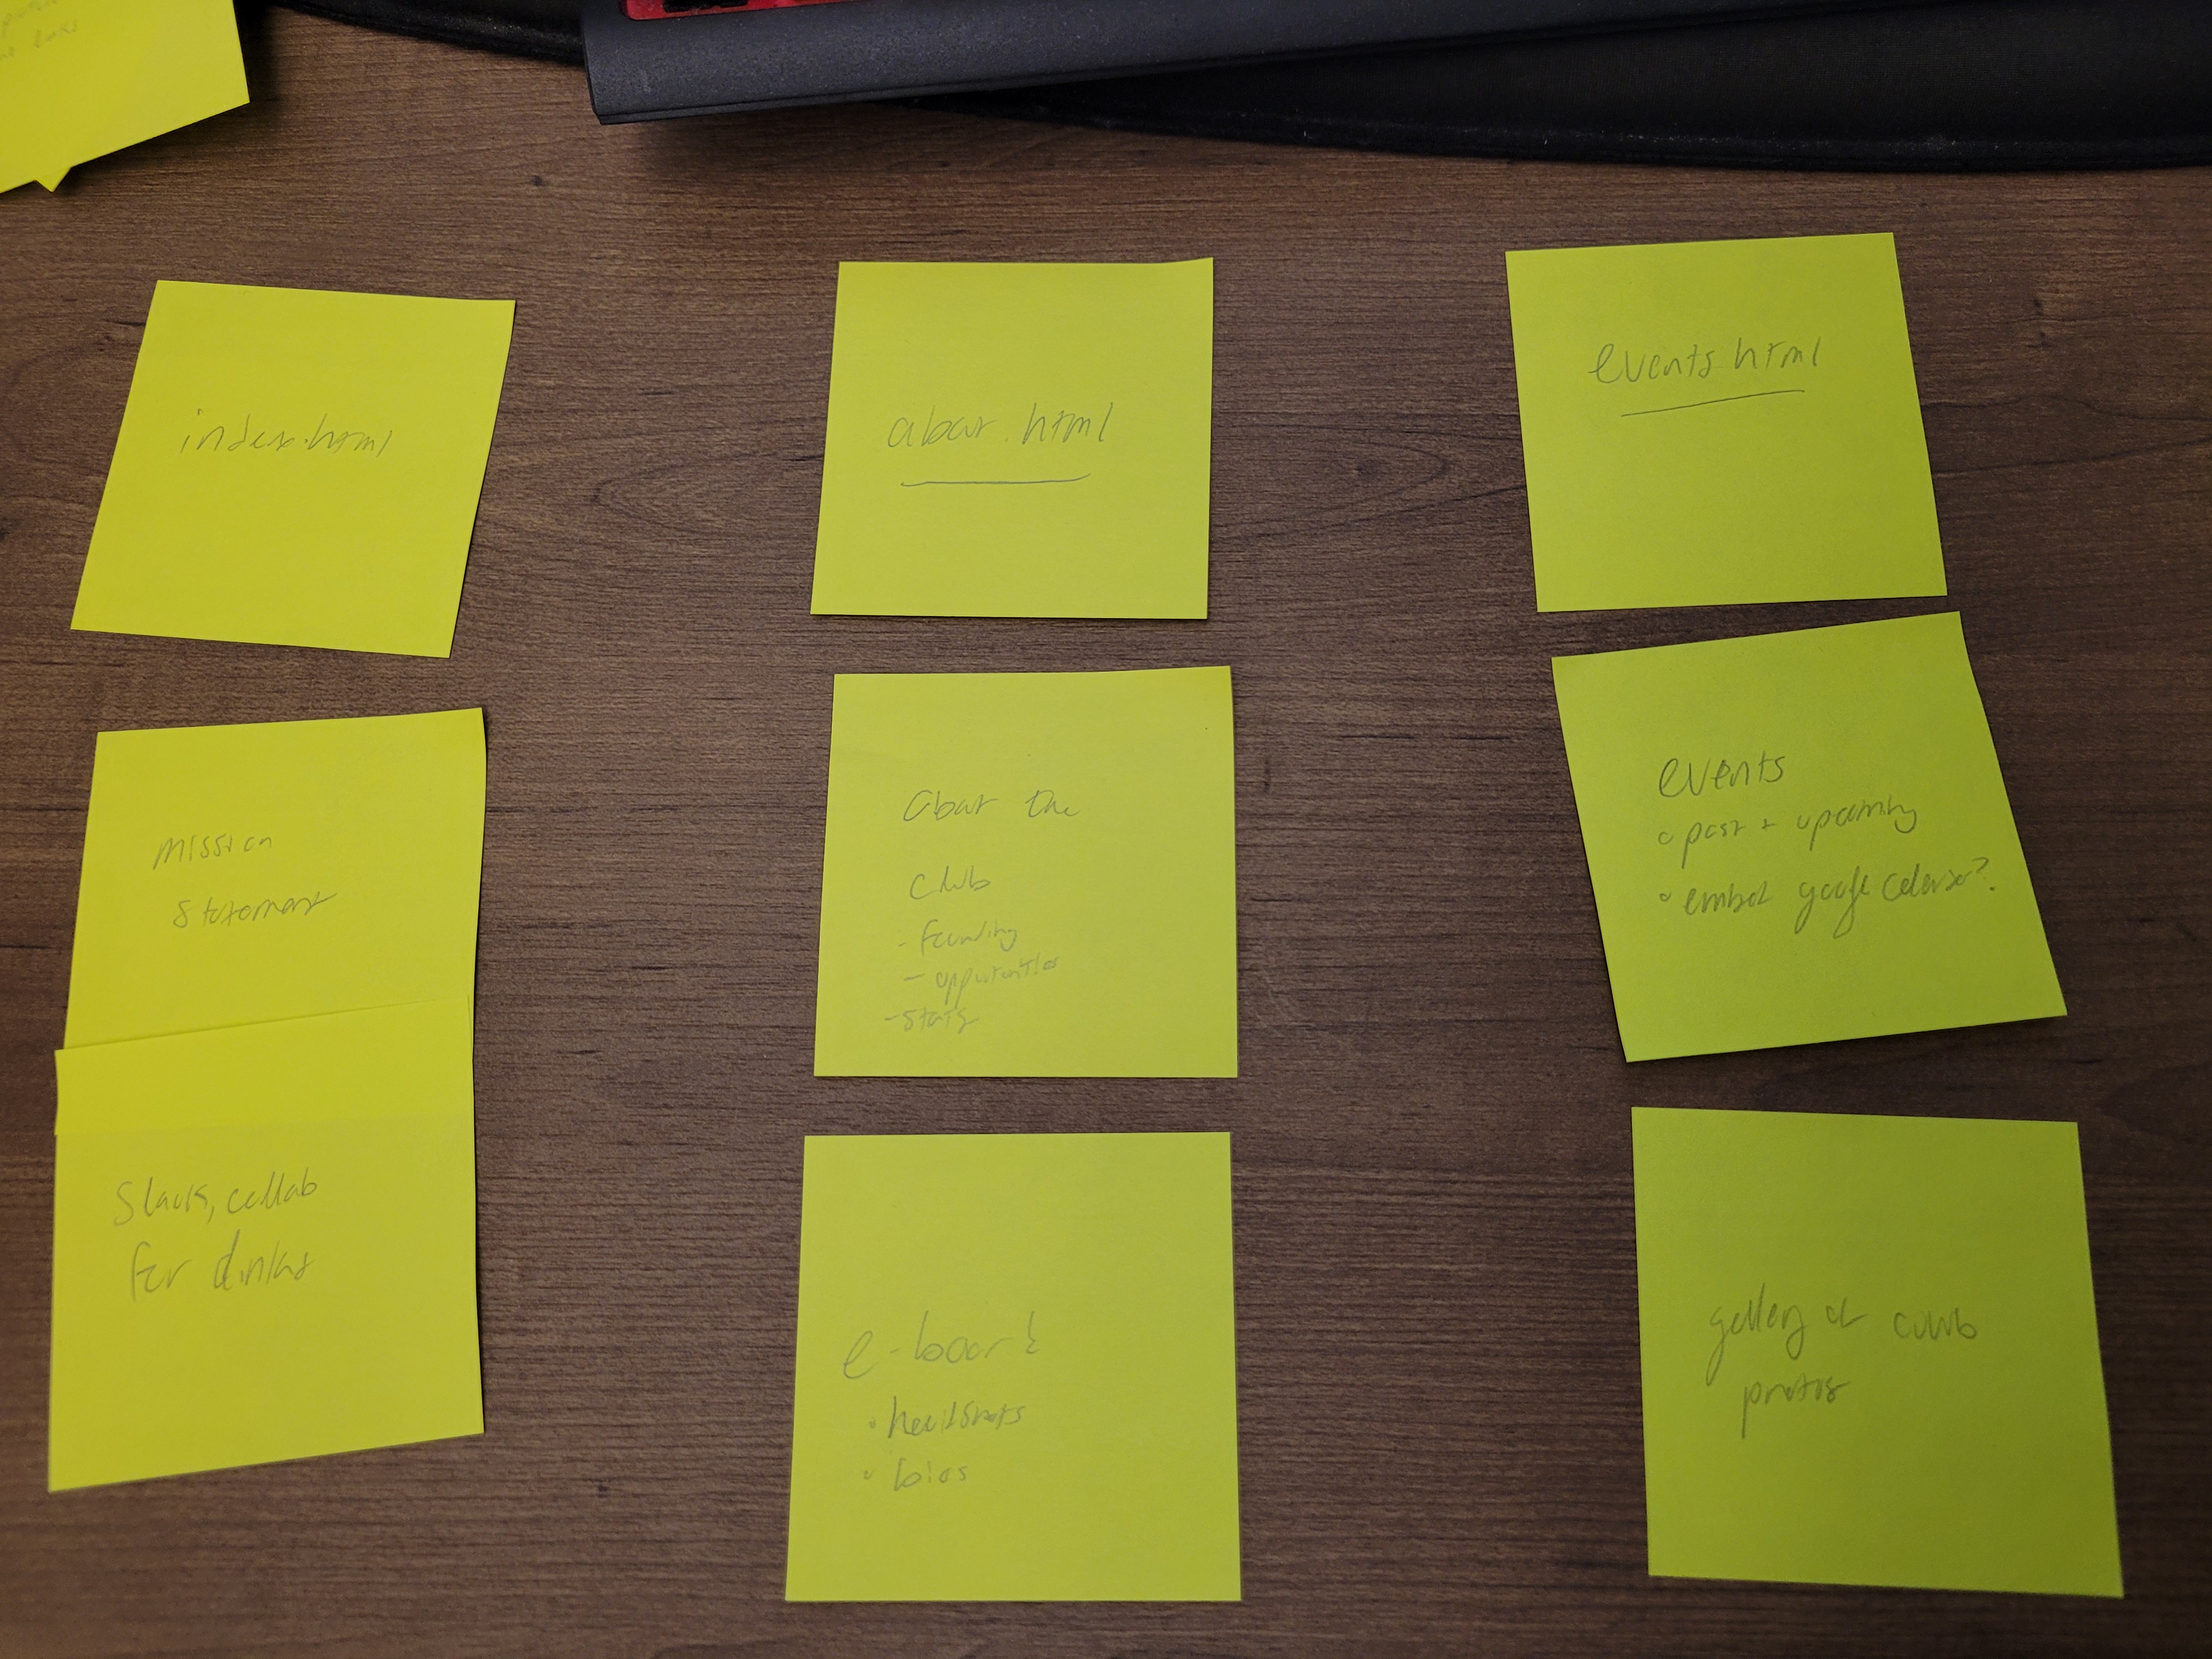 index.html
mission
statement
Slack, collab
for dinks
about.html
about the
club
- funding
- opportunities
- stats
e-board
• headshots
• bios
events.html
events
• past + upcoming
• embed google calendar?
gallery of club
photos